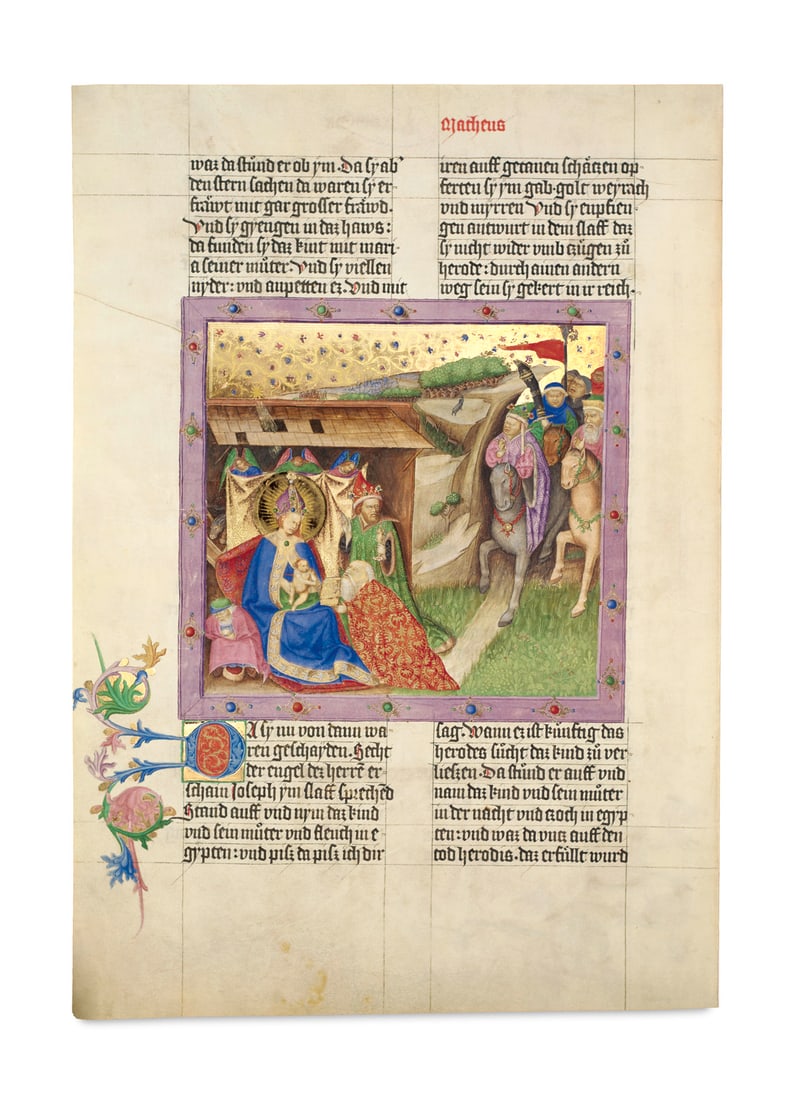 Matheus
waz da stůnd er ob ym. Da sy ab'
den stern sachen da waren sy er-
fräwt mit gar grosser fräwd.
Vnd sy gyengen in daz haws:
da funden sy daz kint mit mari-
a seiner můter. Vnd sy viellen
nyder: vnd anpetten ez. Vnd mit
iren auff getanen schäczen op-
ferten sy ym gab. golt weyrach
vnd myrren Vnd sy enpfien-
gen antwurt in dem slaff daz
sy nicht wider vmb czůgen zů
herode: durch ainen andern
weg sein sy gekert in ir reich.
Da sy nu von dann wa-
ren geschayden. Secht
der engel dez herrē er-
schain Joseph ym slaff sprechēd
Stand auff vnd nym daz kind
vnd sein můter vnd fleuch in e-
gypten: vnd pisz da pisz ich dir
sag. Wann ez ist kunftig das
herodes sůcht daz kind zů ver-
lieszen. Da stůnd er auff vnd
nam daz kind vnd sein můter
in der nacht vnd czoch in egyp-
ten: vnd waz da vntz auff den
tod herodis. daz erfüllt wurd